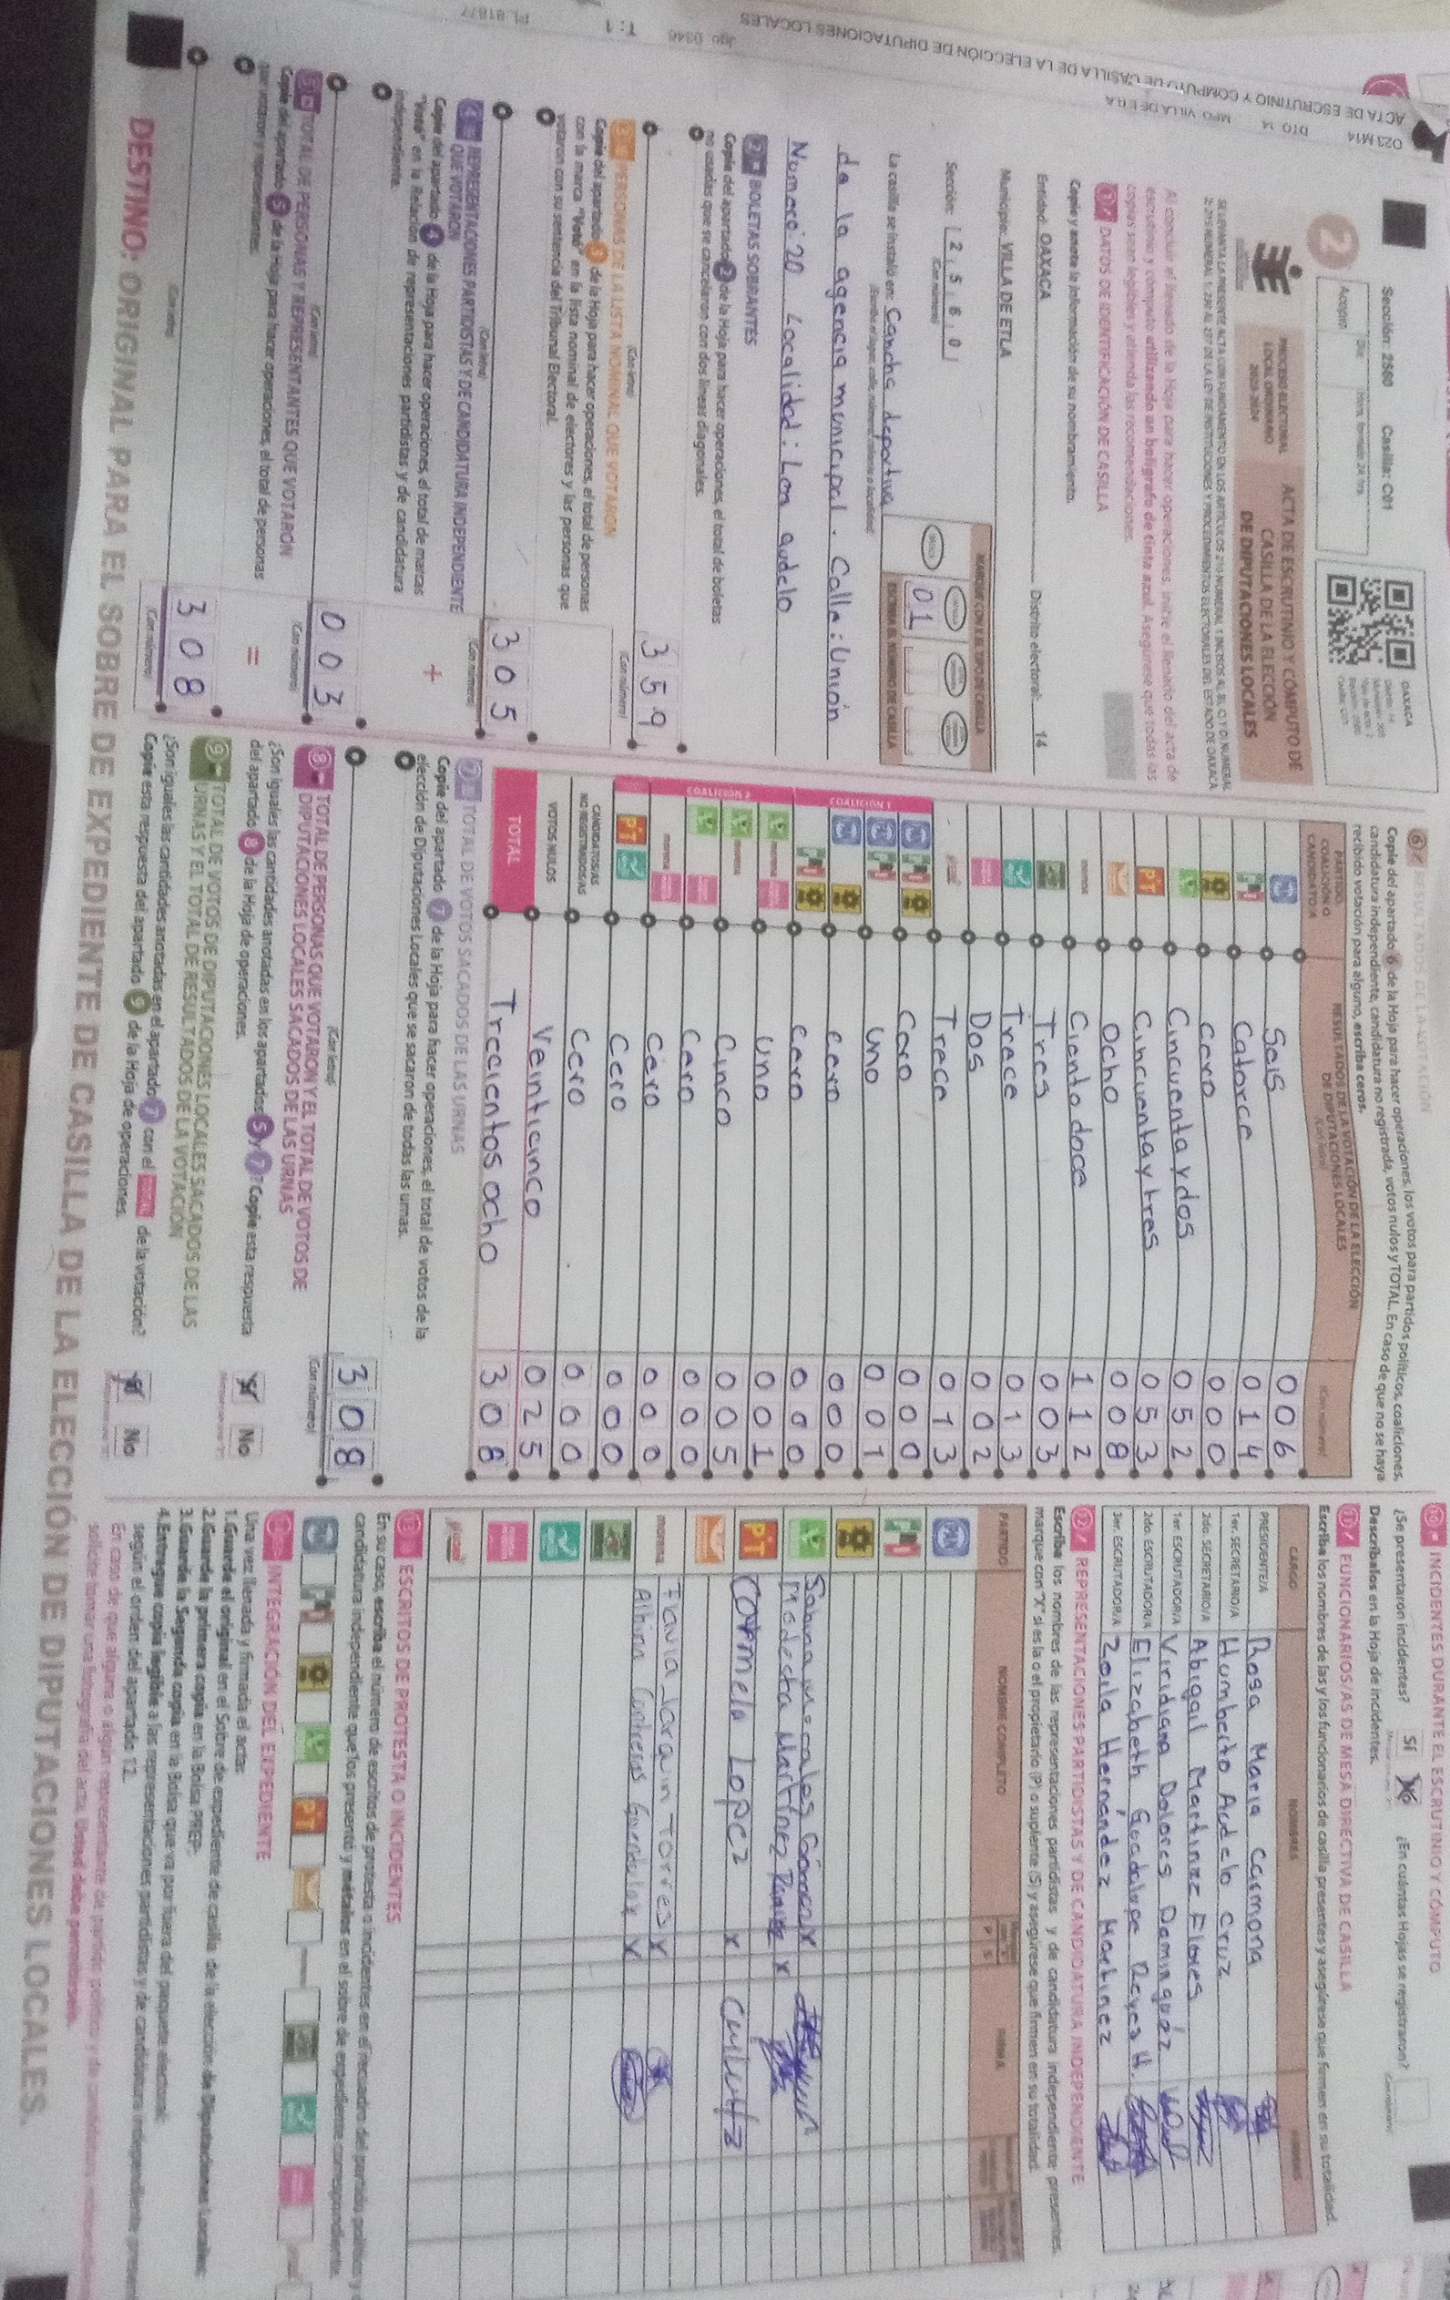 ACTA DE ESCRUTINIO Y CÓMPUTO DE CASILLA DE LA ELECCIÓN DE DIPUTACIONES LOCALES
023 M14 DTO 14 MPO VILLA DE ETLA
T: 1
Sección: 2560 Casilla: C01
Acopio:
2
PROCESO ELECTORAL
LOCAL ORDINARIO
2023-2024
ACTA DE ESCRUTINIO Y CÓMPUTO DE
CASILLA DE LA ELECCIÓN
DE DIPUTACIONES LOCALES
OAXACA
Al concluir el llenado de la Hoja para hacer operaciones, inicie el llenado del acta de
escrutinio y cómputo utilizando un bolígrafo de tinta azul. Asegúrese que todas las
copias sean legibles y atienda las recomendaciones.
1 DATOS DE IDENTIFICACIÓN DE CASILLA
Copie y anote la información de su nombramiento.
Entidad: OAXACA Distrito electoral: 14
Municipio: VILLA DE ETLA
Sección: 2 5 6 0
(Con número)
MARQUE CON X EL TIPO DE CASILLA
ESCRIBA EL NÚMERO DE CASILLA
01
La casilla se instaló en: Cancha deportiva
de la agencia municipal. Calle: Unión
Numero 20 Localidad: Lon audelo
2 BOLETAS SOBRANTES
Copie del apartado 2 de la Hoja para hacer operaciones, el total de boletas
no usadas que se cancelaron con dos líneas diagonales.
359
(Con letra) (Con número)
3 PERSONAS DE LA LISTA NOMINAL QUE VOTARON
Copie del apartado 3 de la Hoja para hacer operaciones, el total de personas
con la marca "Votó" en la lista nominal de electores y las personas que
votaron con su sentencia del Tribunal Electoral.
305
(Con letra) (Con número)
4 REPRESENTACIONES PARTIDISTAS Y DE CANDIDATURA INDEPENDIENTE
QUE VOTARON
+
Copie del apartado 4 de la Hoja para hacer operaciones, el total de marcas
"Votó" en la Relación de representaciones partidistas y de candidatura
independiente.
003
(Con letra) (Con número)
5 TOTAL DE PERSONAS Y REPRESENTANTES QUE VOTARON
=
Copie del apartado 5 de la Hoja para hacer operaciones, el total de personas
que votaron y representantes.
308
(Con letra) (Con número)
6 RESULTADOS DE LA VOTACIÓN
Copie del apartado 6 de la Hoja para hacer operaciones, los votos para partidos políticos, coaliciones,
candidatura independiente, candidatura no registrada, votos nulos y TOTAL. En caso de que no se haya
recibido votación para alguno, escriba ceros.
PARTIDO, COALICIÓN O CANDIDATO/A
RESULTADOS DE LA VOTACIÓN DE LA ELECCIÓN
DE DIPUTACIONES LOCALES
(Con letra) (Con número)
Seis 006
Catorce 014
cero 000
Cincuenta y dos 052
PT Cincuenta y tres 053
Ocho 008
morena Ciento doce 112
Tres 003
Trece 013
Dos 002
Trece 013
COALICIÓN 1
Cero 000
Uno 001
cero 000
cero 000
COALICIÓN 2
Uno 001
Cinco 005
Cero 000
cero 000
Cero 000
CANDIDATOS/AS
NO REGISTRADOS/AS
Cero 000
VOTOS NULOS Veinticinco 025
TOTAL Trecientos ocho 308
7 TOTAL DE VOTOS SACADOS DE LAS URNAS
Copie del apartado 7 de la Hoja para hacer operaciones, el total de votos de la
elección de Diputaciones Locales que se sacaron de todas las urnas.
308
(Con letra) (Con número)
8 TOTAL DE PERSONAS QUE VOTARON Y EL TOTAL DE VOTOS DE
DIPUTACIONES LOCALES SACADOS DE LAS URNAS
¿Son iguales las cantidades anotadas en los apartados 5 y 7? Copie esta respuesta
del apartado 8 de la Hoja de operaciones.
Sí No
9 TOTAL DE VOTOS DE DIPUTACIONES LOCALES SACADOS DE LAS
URNAS Y EL TOTAL DE RESULTADOS DE LA VOTACIÓN
¿Son iguales las cantidades anotadas en el apartado 7 con el TOTAL de la votación?
Copie esta respuesta del apartado 9 de la Hoja de operaciones.
Sí No
10 INCIDENTES DURANTE EL ESCRUTINIO Y CÓMPUTO
¿Se presentaron incidentes? Sí No ¿En cuántas Hojas se registraron?
Descríbalos en la Hoja de incidentes.
11 FUNCIONARIOS/AS DE MESA DIRECTIVA DE CASILLA
Escriba los nombres de las y los funcionarios de casilla presentes y asegúrese que firmen en su totalidad.
CARGO NOMBRES FIRMAS
PRESIDENTE/A Rosa Maria Carmona
1er. SECRETARIO/A Humberto Audelo Cruz
2do. SECRETARIO/A Abigail Martinez Flores
1er. ESCRUTADOR/A Viridiana Dolores Dominguez
2do. ESCRUTADOR/A Elizabeth Guadalupe Reyes H.
3er. ESCRUTADOR/A Zoila Hernandez Martinez
12 REPRESENTACIONES PARTIDISTAS Y DE CANDIDATURA INDEPENDIENTE
Escriba los nombres de las representaciones partidistas y de candidatura independiente presentes,
marque con "X" si es la o el propietario (P) o suplente (S) y asegúrese que firmen en su totalidad.
PARTIDO NOMBRE COMPLETO P S FIRMA
x
Modesta Martínez x
PT Carmela Lopez x
morena Flavia Torres x
Albina Contreras x
13 ESCRITOS DE PROTESTA O INCIDENTES
En su caso, escriba el número de escritos de protesta o incidentes en el recuadro del partido político y
candidatura independiente que los presentó y métalos en el sobre de expediente correspondiente.
INTEGRACIÓN DEL EXPEDIENTE
Una vez llenada y firmada el acta:
1. Guarde el original en el Sobre de expediente de casilla de la elección de Diputaciones Locales;
2. Guarde la primera copia en la Bolsa PREP;
3. Guarde la Segunda copia en la Bolsa que va por fuera del paquete electoral;
4. Entregue copia legible a las representaciones partidistas y de candidatura independiente presentes
según el orden del apartado 12.
DESTINO: ORIGINAL PARA EL SOBRE DE EXPEDIENTE DE CASILLA DE LA ELECCIÓN DE DIPUTACIONES LOCALES.